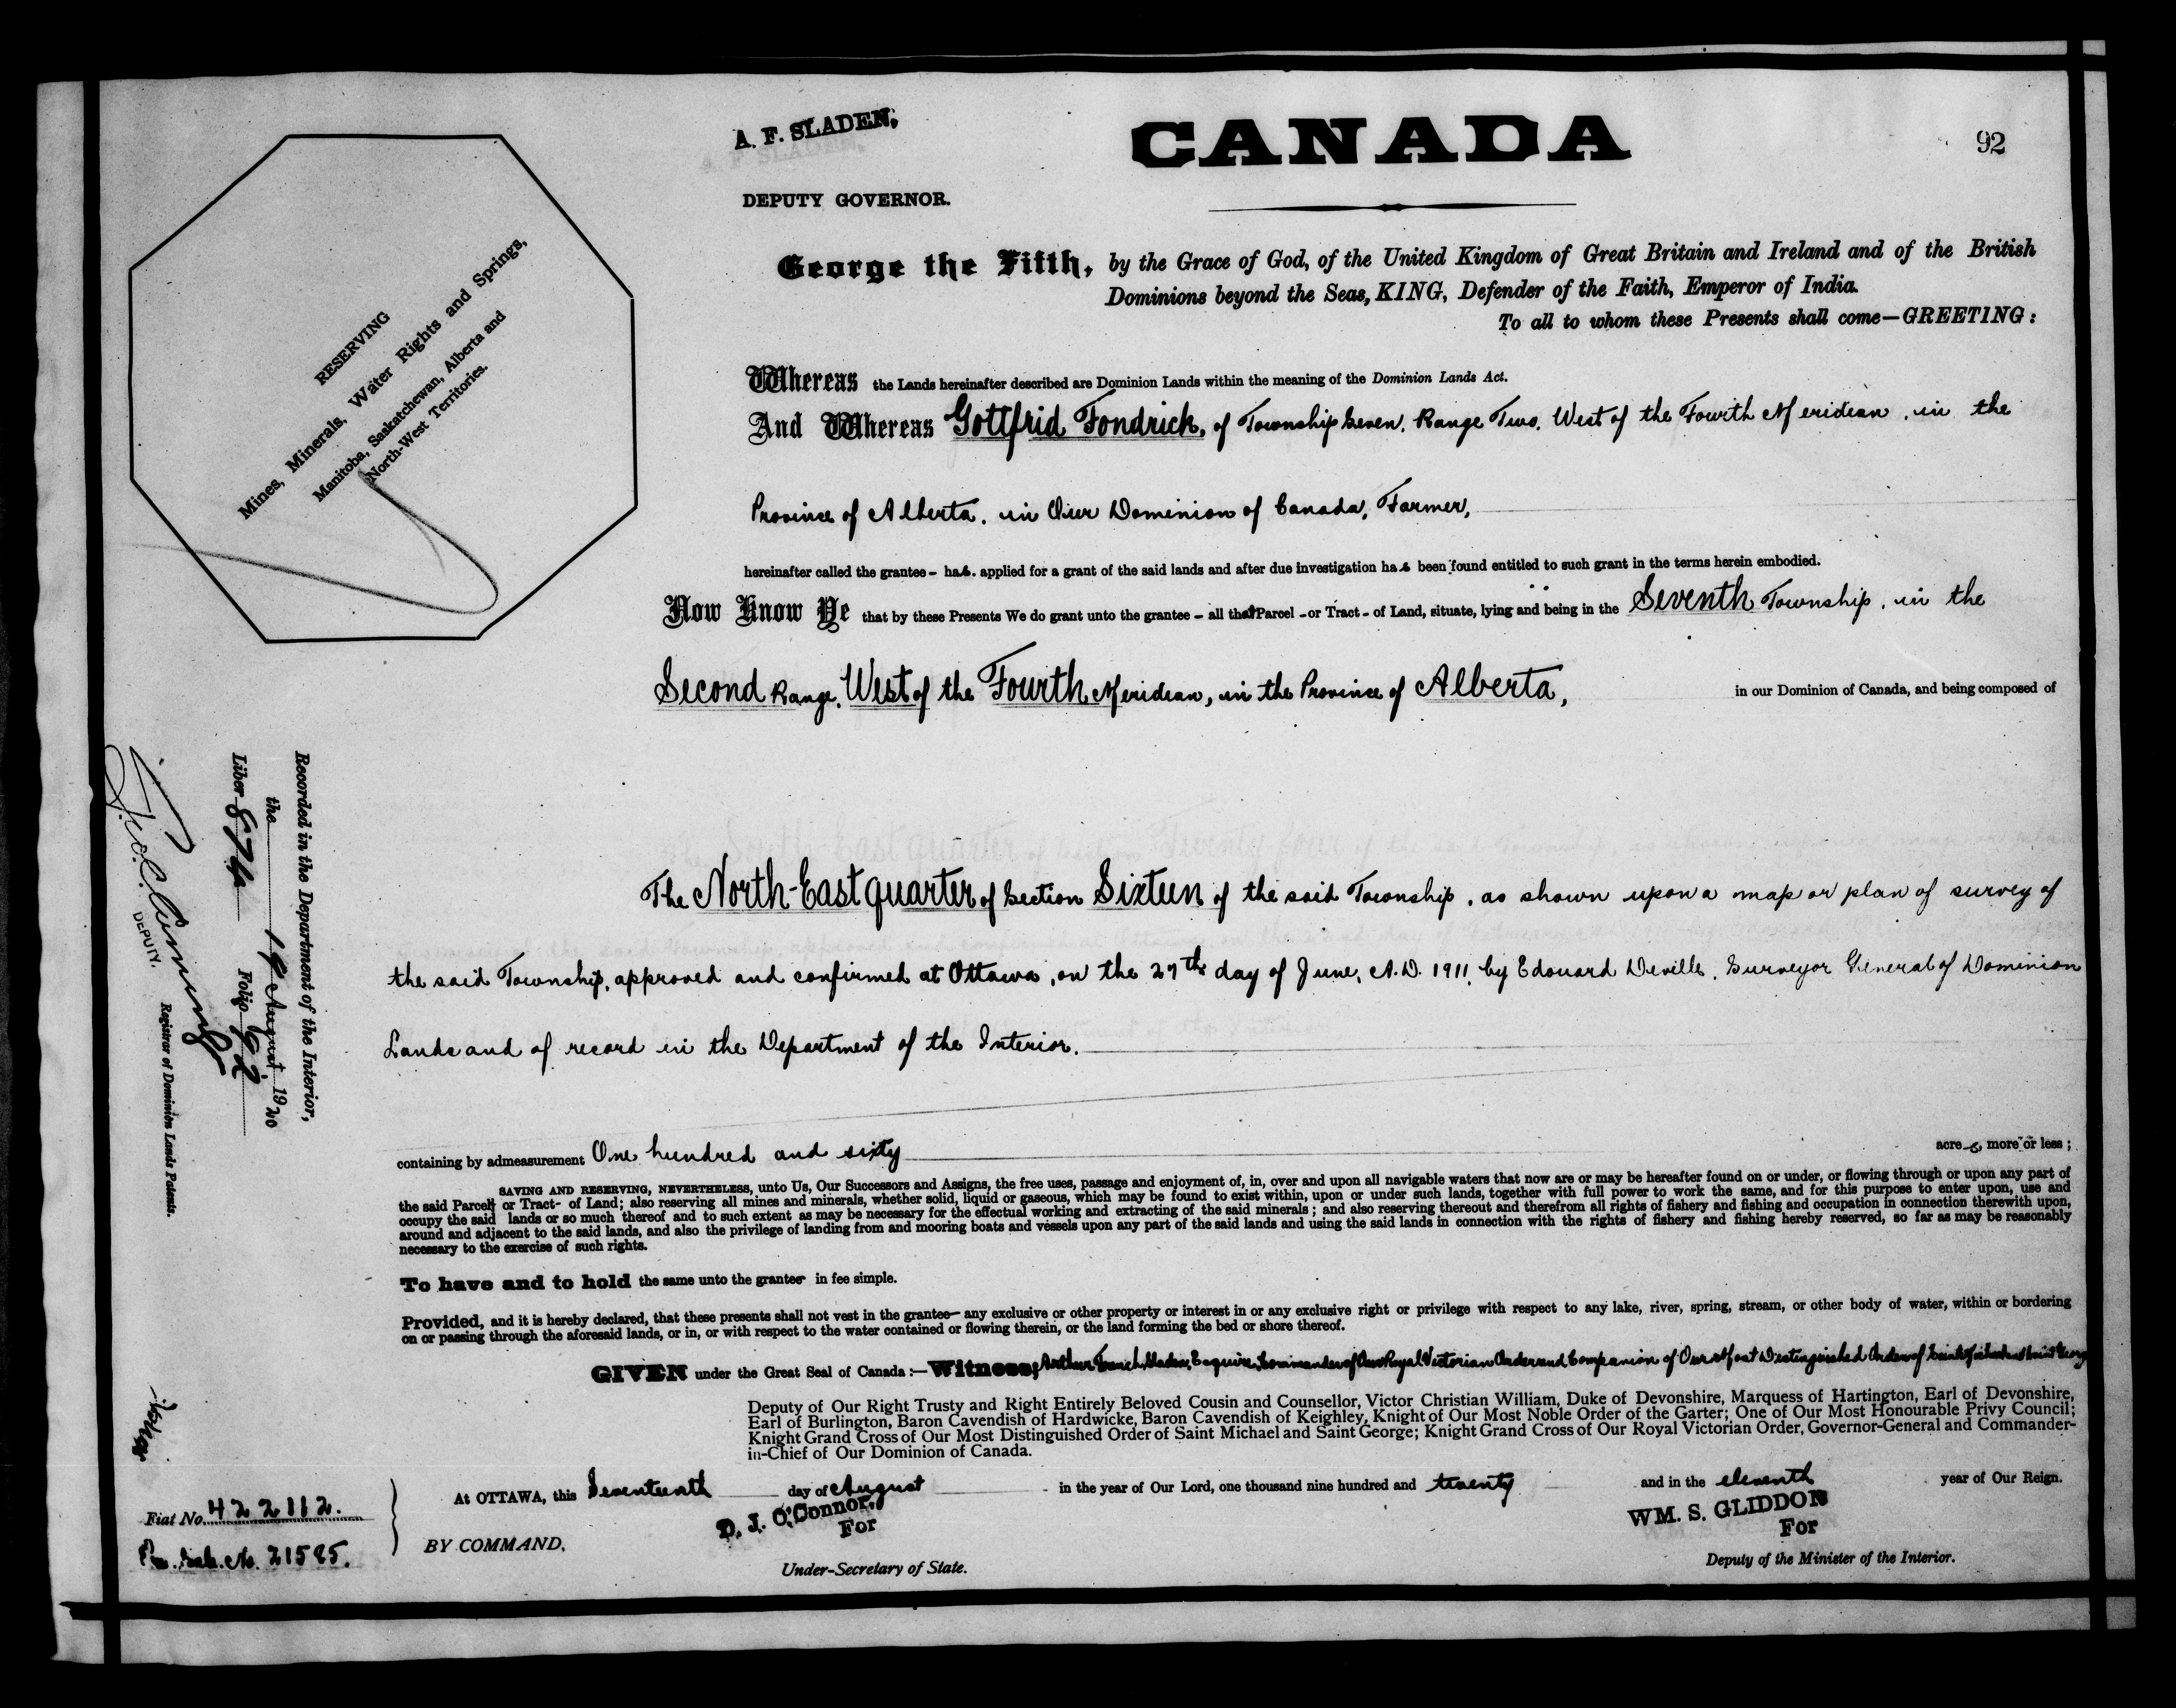 A. F. SLADEN,
DEPUTY GOVERNOR.
CANADA
92
George the Fifth, by the Grace of God, of the United Kingdom of Great Britain and Ireland and of the British
Dominions beyond the Seas, KING, Defender of the Faith, Emperor of India.
To all to whom these Presents shall come—GREETING:
RESERVING
Mines, Minerals, Water Rights and Springs,
Manitoba, Saskatchewan, Alberta and
North-West Territories.
Whereas the Lands hereinafter described are Dominion Lands within the meaning of the Dominion Lands Act.
And Whereas Gottfrid Fondrick, of Township Seven, Range Two, West of the Fourth Meridian, in the
Province of Alberta, in Our Dominion of Canada, Farmer,
hereinafter called the grantee - has. applied for a grant of the said lands and after due investigation has been found entitled to such grant in the terms herein embodied.
Now Know Ye that by these Presents We do grant unto the grantee - all that Parcel - or Tract - of Land, situate, lying and being in the Seventh Township, in the
Second Range, West of the Fourth Meridian, in the Province of Alberta, in our Dominion of Canada, and being composed of
The North-East quarter of Section Sixteen of the said Township, as shown upon a map or plan of survey of
the said Township, approved and confirmed at Ottawa, on the 27th day of June, A.D. 1911, by Edouard Deville, Surveyor General of Dominion
Lands and of record in the Department of the Interior.
Recorded in the Department of the Interior,
the 19 August, 1920
Liber 874 Folio 92
DEPUTY. Registrar of Dominion Lands Patents.
containing by admeasurement One hundred and sixty acres, more or less;
SAVING AND RESERVING, NEVERTHELESS, unto Us, Our Successors and Assigns, the free uses, passage and enjoyment of, in, over and upon all navigable waters that now are or may be hereafter found on or under, or flowing through or upon any part of
the said Parcel or Tract- of Land; also reserving all mines and minerals, whether solid, liquid or gaseous, which may be found to exist within, upon or under such lands, together with full power to work the same, and for this purpose to enter upon, use and
occupy the said lands or so much thereof and to such extent as may be necessary for the effectual working and extracting of the said minerals; and also reserving thereout and therefrom all rights of fishery and fishing and occupation in connection therewith upon,
around and adjacent to the said lands, and also the privilege of landing from and mooring boats and vessels upon any part of the said lands and using the said lands in connection with the rights of fishery and fishing hereby reserved, so far as may be reasonably
necessary to the exercise of such rights.
To have and to hold the same unto the grantee in fee simple.
Provided, and it is hereby declared, that these presents shall not vest in the grantee— any exclusive or other property or interest in or any exclusive right or privilege with respect to any lake, river, spring, stream, or other body of water, within or bordering
on or passing through the aforesaid lands, or in, or with respect to the water contained or flowing therein, or the land forming the bed or shore thereof.
GIVEN under the Great Seal of Canada:—Witness, Arthur French Sladen, Esquire, Commander of Our Royal Victorian Order and Companion of Our Most Distinguished Order of Saint Michael and Saint George
Deputy of Our Right Trusty and Right Entirely Beloved Cousin and Counsellor, Victor Christian William, Duke of Devonshire, Marquess of Hartington, Earl of Devonshire,
Earl of Burlington, Baron Cavendish of Hardwicke, Baron Cavendish of Keighley, Knight of Our Most Noble Order of the Garter; One of Our Most Honourable Privy Council;
Knight Grand Cross of Our Most Distinguished Order of Saint Michael and Saint George; Knight Grand Cross of Our Royal Victorian Order, Governor-General and Commander-
in-Chief of Our Dominion of Canada.
At OTTAWA, this Seventeenth day of August in the year of Our Lord, one thousand nine hundred and twenty and in the eleventh year of Our Reign.
D. J. O'Connor,
For
WM. S. GLIDDON
For
BY COMMAND,
Under-Secretary of State.
Deputy of the Minister of the Interior.
Fiat No. 422112.
No. 21585.